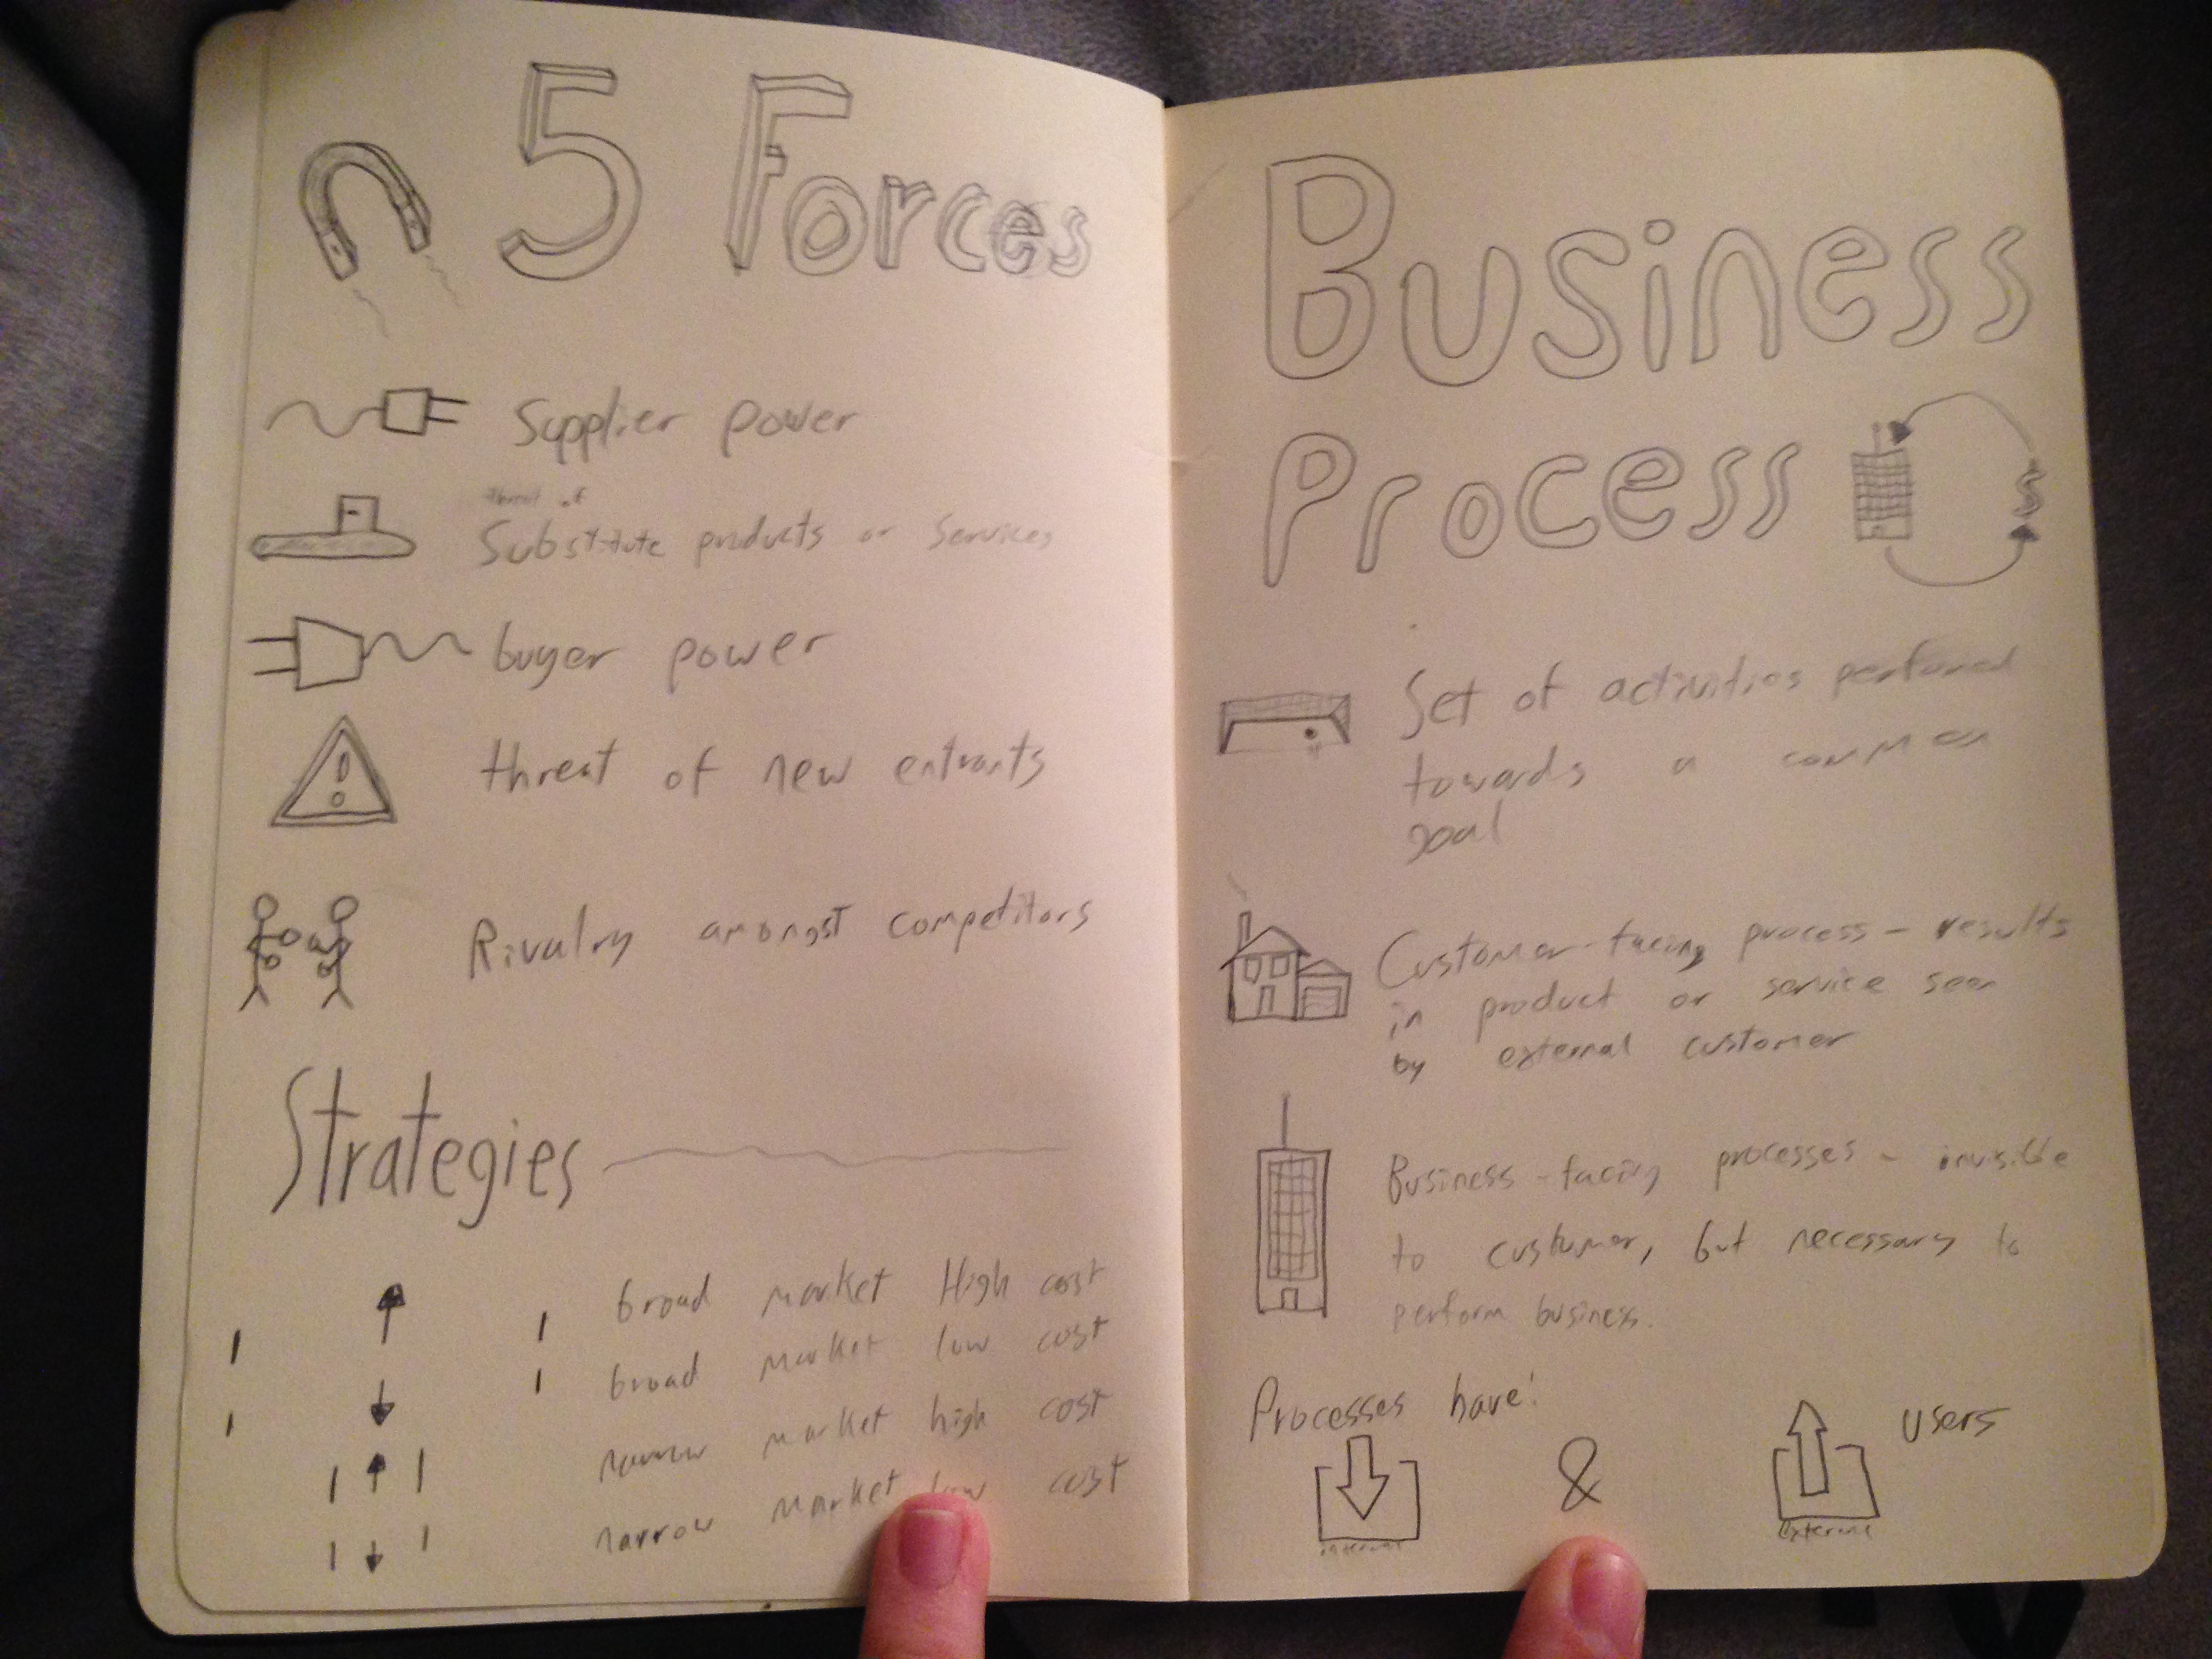 5 Forces
Supplier power
threat of
Substitute products or services
buyer power
threat of new entrants
Rivalry amongst competitors
Strategies
broad market High cost
broad market low cost
narrow market high cost
narrow market low cost
Business
Process
$
Set of activities performed
towards a common
goal
Customer-facing process - results
in product or service seen
by external customer
Business-facing processes - invisible
to customer, but necessary to
perform business.
Processes have:
&
Users
internal
External